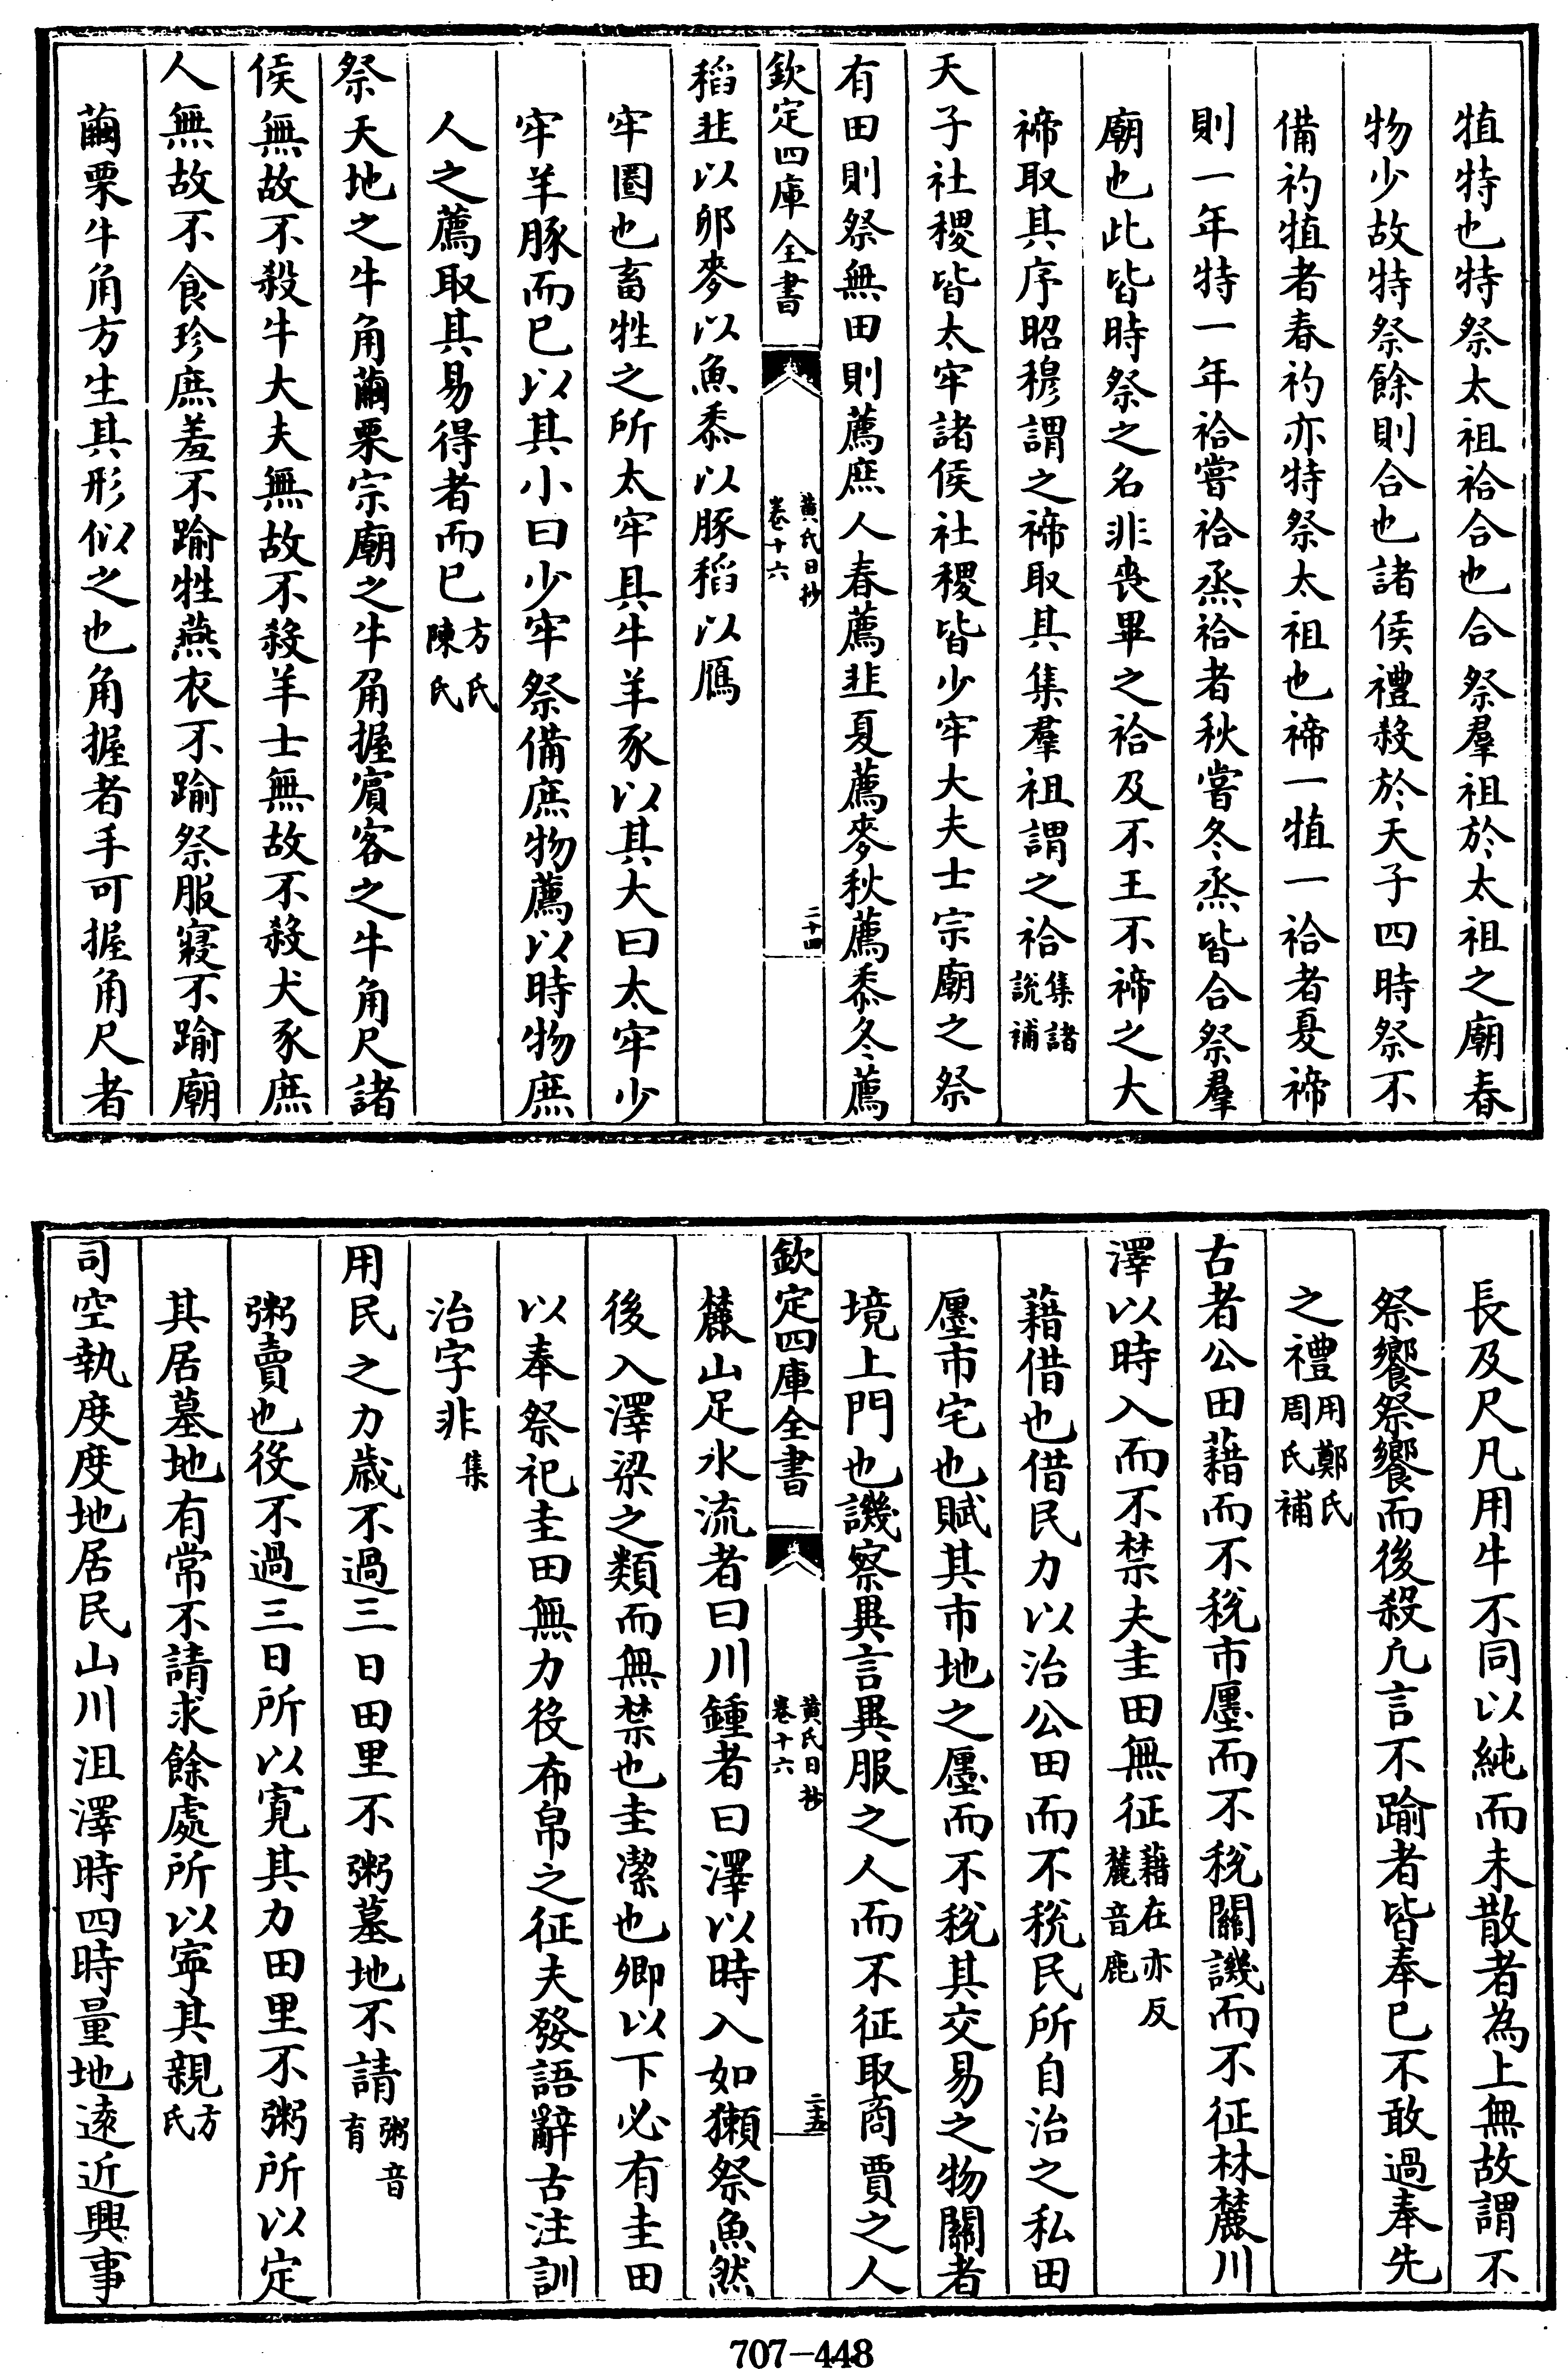 犆特也特祭太祖祫合也合祭羣祖於太祖之廟春
物少故特祭餘則合也諸侯禮殺於天子四時祭不
備礿犆者春礿亦特祭太祖也禘一犆一祫者夏禘
則一年特一年祫嘗祫烝祫者秋嘗冬烝皆合祭羣
廟也此皆時祭之名非喪畢之祫及不王不禘之大
禘取其序昭穆謂之禘取其集羣祖謂之祫集諸
說補
天子社稷皆太牢諸侯社稷皆少牢大夫士宗廟之祭
有田則祭無田則薦庶人春薦韭夏薦麥秋薦黍冬薦
欽定四庫全書
黃氏日抄
卷十六
二十四
稻韭以卵麥以魚黍以豚稻以鴈
牢圈也畜牲之所太牢具牛羊豕以其大曰太牢少
牢羊豚而已以其小曰少牢祭備庶物薦以時物庶
人之薦取其易得者而已方氏
陳氏
祭天地之牛角繭栗宗廟之牛角握賓客之牛角尺諸
侯無故不殺牛大夫無故不殺羊士無故不殺犬豕庶
人無故不食珍庶羞不踰牲燕衣不踰祭服寢不踰廟
繭栗牛角方生其形似之也角握者手可握角尺者
長及尺凡用牛不同以純而未散者為上無故謂不
祭饗祭饗而後殺凡言不踰者皆奉已不敢過奉先
之禮用鄭氏
周氏補
古者公田藉而不稅市廛而不稅關譏而不征林麓川
澤以時入而不禁夫圭田無征藉在亦反
麓音鹿
藉借也借民力以治公田而不稅民所自治之私田
廛市宅也賦其市地之廛而不稅其交易之物關者
境上門也譏察異言異服之人而不征取商賈之人
欽定四庫全書
黃氏日抄
卷十六
二十五
麓山足水流者曰川鍾者曰澤以時入如獺祭魚然
後入澤梁之類而無禁也圭潔也卿以下必有圭田
以奉祭祀圭田無力役布帛之征夫發語辭古注訓
治字非集
用民之力歲不過三日田里不粥墓地不請粥音
育
粥賣也役不過三日所以寬其力田里不粥所以定
其居墓地有常不請求餘處所以寧其親方
氏
司空執度度地居民山川沮澤時四時量地遠近興事
707-448